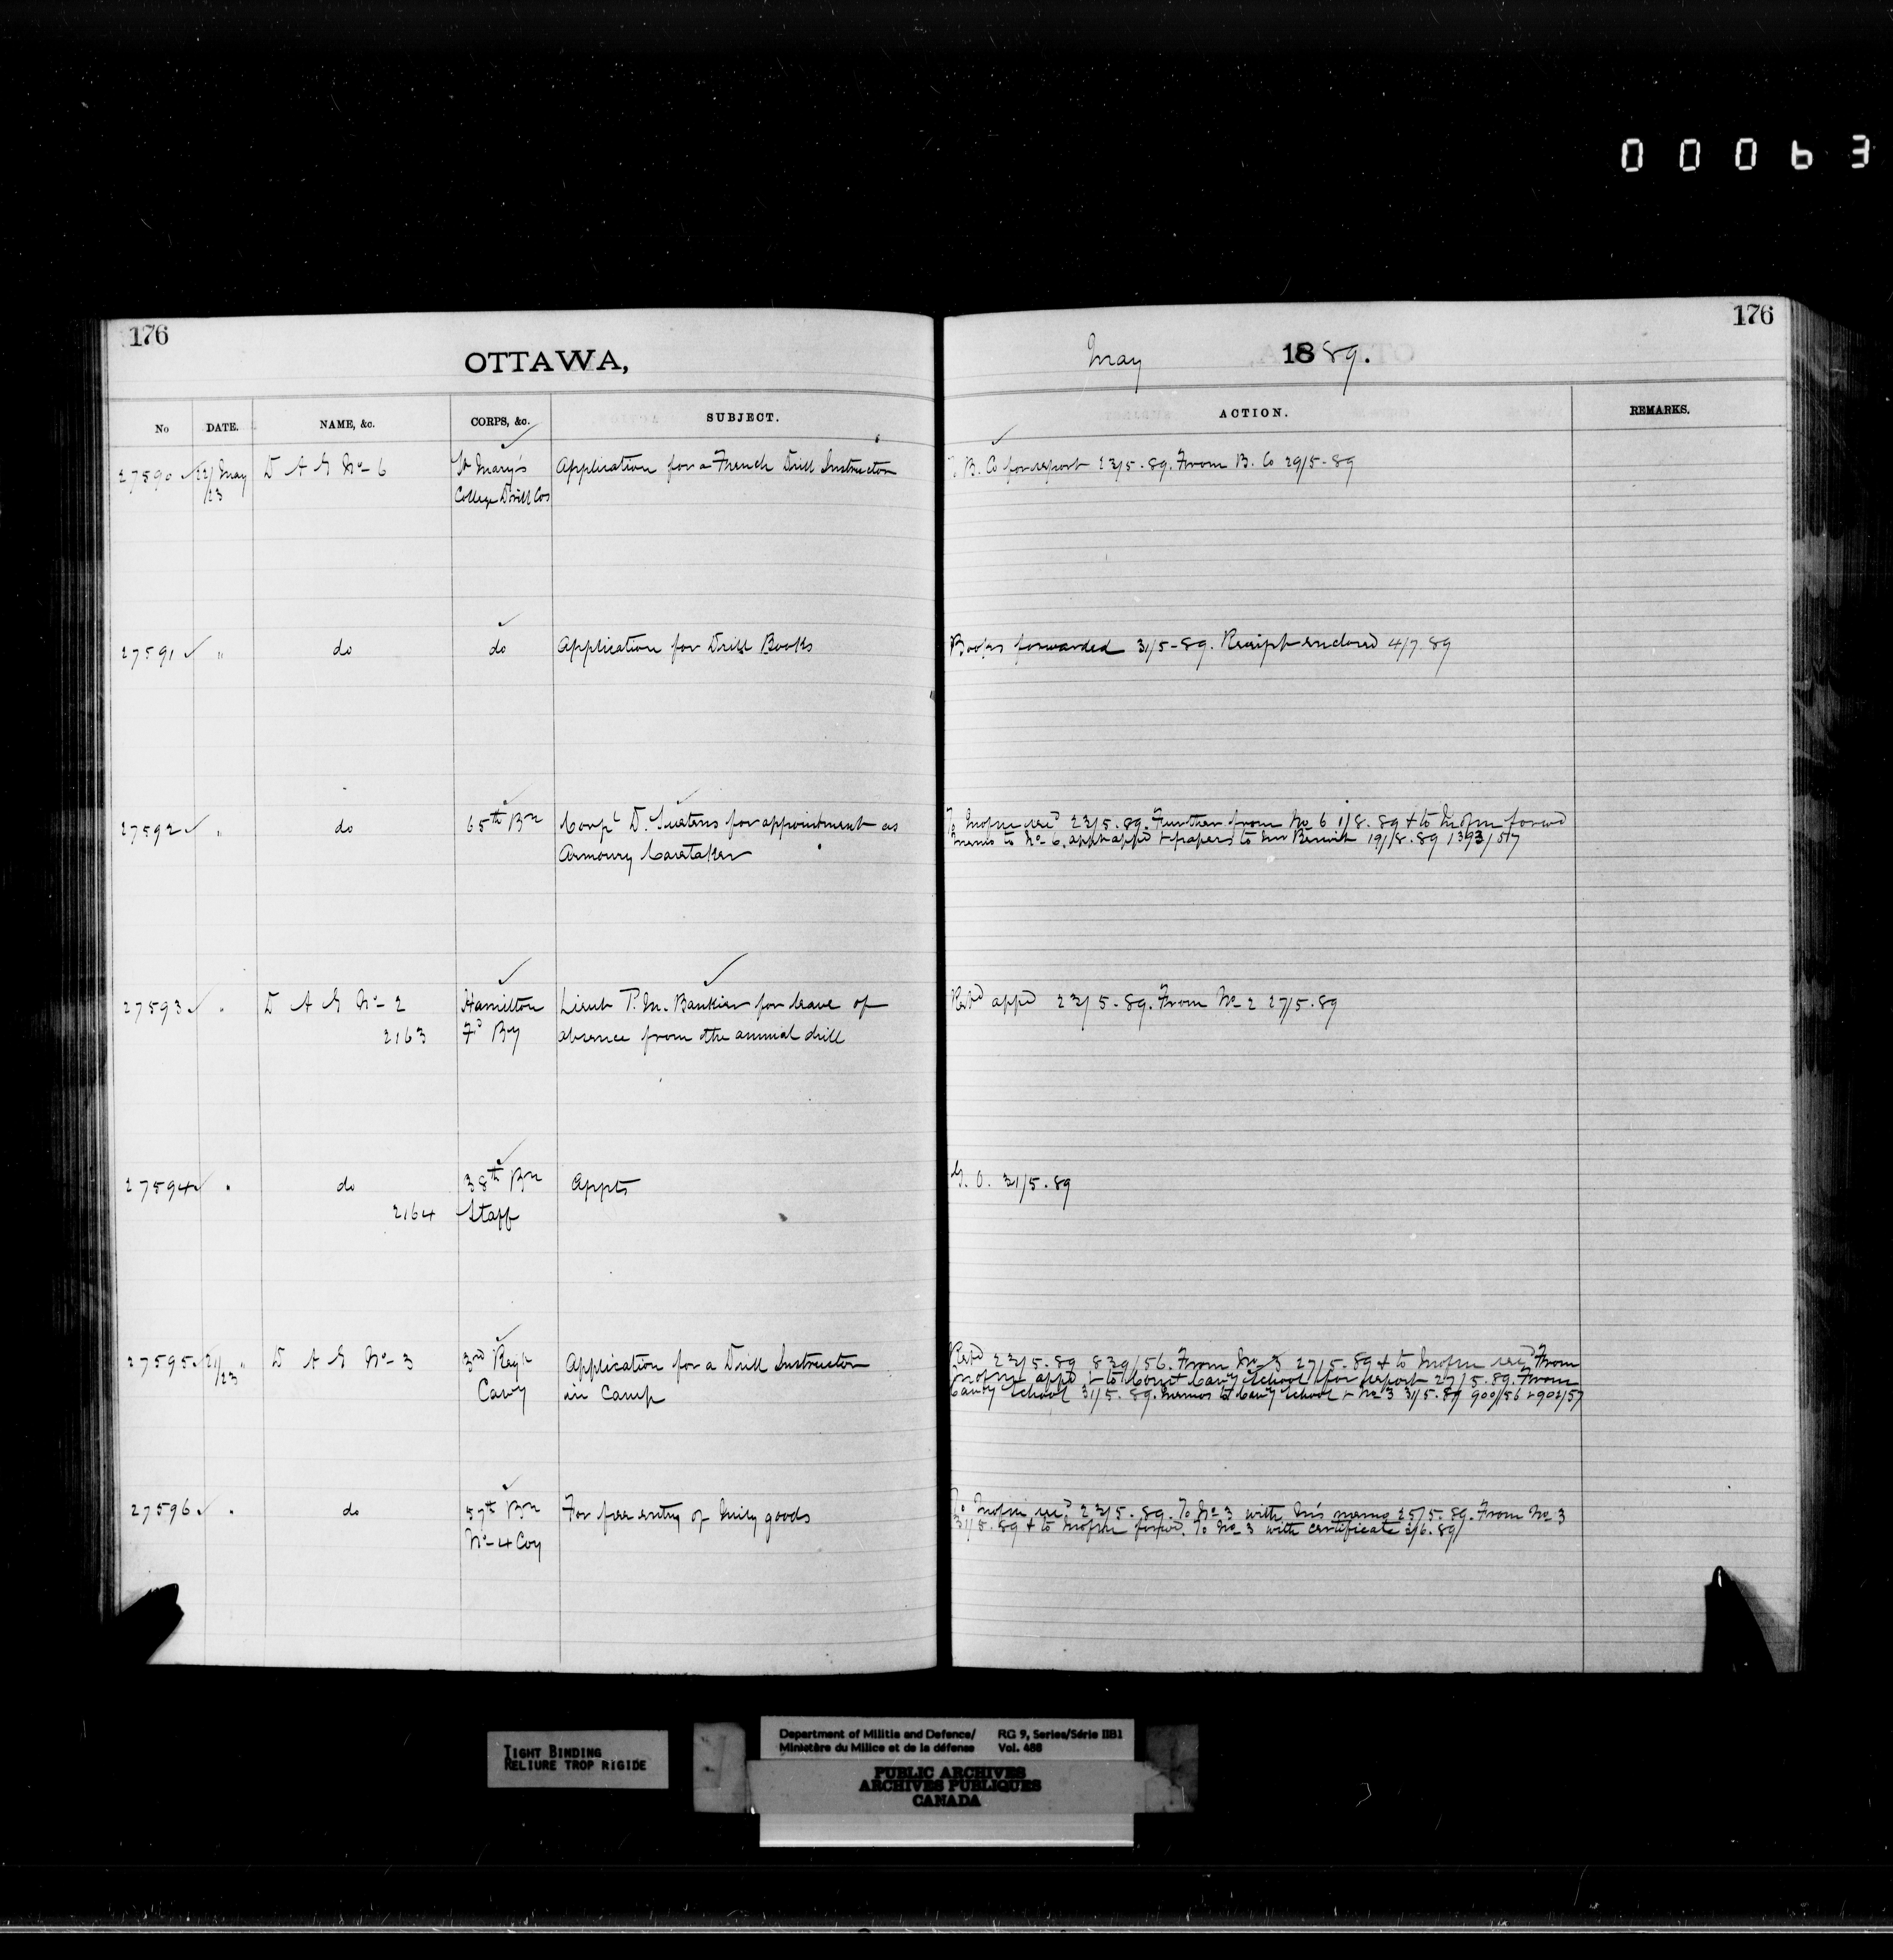 00063
176
OTTAWA,
No DATE. NAME, &c. CORPS, &c. SUBJECT.
27590 22/23 May D A G No 6 St Mary's College Drill Cos Application for a French Drill Instructor
27591 " do do Application for Drill Books
27592 " do 65th Bn Corpl D. for appointment as
Armoury Caretaker
27593 " D A G No 2 Hamilton Lieut P. M. Bankier for leave of
2163 Fd By absence from the annual drill
27594 " do 38th Bn Appts
2164 Staff
27595 21/23 " D A G No 3 3rd Regt Application for a Drill Instructor
Cavy in Camp
27596 " do 57th Bn For free entry of Mily goods
No 4 Coy
176
May 1889.
ACTION. REMARKS.
B. Co for report 23/5.89. From B. Co 29/5-89
Books forwarded 31/5-89. Receipt enclosed 4/7.89
To Mofm recd 23/5.89. Further from No 6 1/8.89 + to Mofm forwd
memo to No 6. appt appd + papers to 19/8.89 1393/57
Repd appd 23/5.89. From No 2 27/5.89
G. O. 31/5.89
Repd 23/5.89 839/56. From No 3 27/5.89 + to Mofm recd From
Mofm appd + to Comt Cavy School for report 27/5.89. From
Cavy School 31/5.89. Memos to Cavy School + No 3 31/5.89 900/56 + 902/57
To Mofm recd 23/5.89. To No 3 with memo 25/5.89. From No 3
31/5.89 + to Mofm forwd. To No 3 with certificate 2/6.89
TIGHT BINDING
RELIURE TROP RIGIDE
Department of Militia and Defence/ RG 9, Series/Série IIB1
Ministère du Milice et de la défense Vol. 488
PUBLIC ARCHIVES
ARCHIVES PUBLIQUES
CANADA